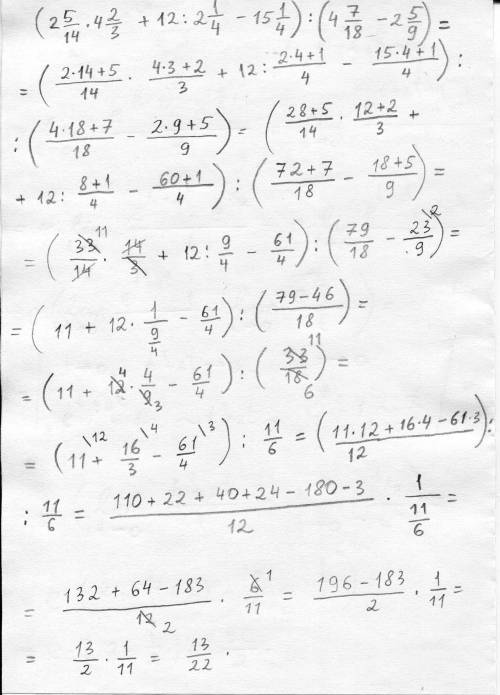 (2 5/14 · 4 2/3 + 12 : 2 1/4 − 15 1/4) : (4 7/18 − 2 5/9) =
= ((2·14+5)/14 · (4·3+2)/3 + 12 : (2·4+1)/4 − (15·4+1)/4) :
: ((4·18+7)/18 − (2·9+5)/9) = ((28+5)/14 · (12+2)/3 +
+ 12 : (8+1)/4 − (60+1)/4) : ((72+7)/18 − (18+5)/9) =
= (33 11/14 · 14/3 + 12 : 9/4 − 61/4) : (79/18 − 23\2/9) =
= (11 + 12 · 1/(9/4) − 61/4) : ((79−46)/18) =
= (11 + 12 4 · 4/9 3 − 61/4) : (33 11/18 6) =
= (11\12 + 16\4/3 − 61\3/4) : 11/6 = ((11·12 + 16·4 − 61·3)/12) :
: 11/6 = (110+22+40+24−180−3)/12 · 1/(11/6) =
= (132 + 64 − 183)/12 2 · 6 1/11 = (196 − 183)/2 · 1/11 =
= 13/2 · 1/11 = 13/22 .